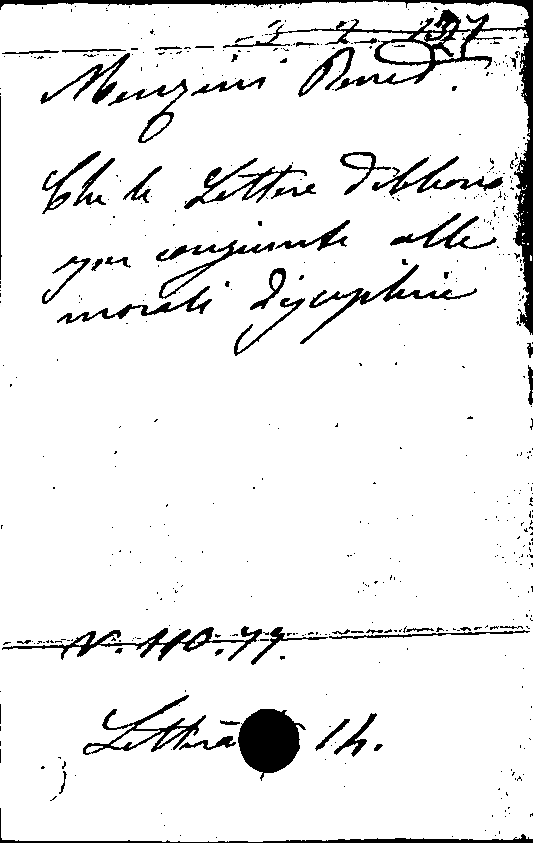 Menzini Bened.
Che le Lettere debbono
congiunte alle
morali discipline
V. 110. 77.
Letterā 14.